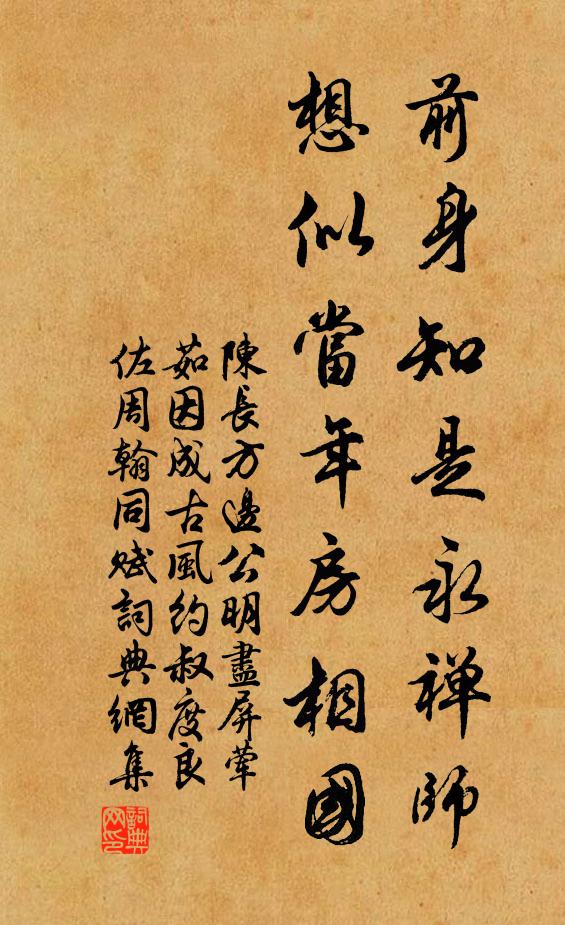 前身知是永禅師
想似當年房相國
陳長方邊公明盡屏葷
茹因成古風約叔度良
佐周翰同赋詞典網集
詞典網印